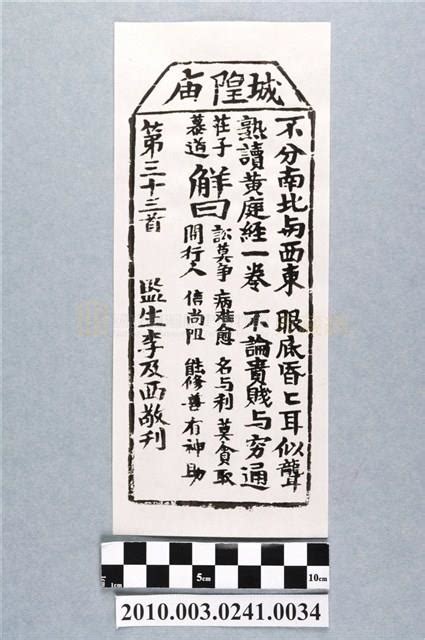 城隍庙
不分南北与西東 眼底昏匕耳似聾
熟讀黃庭經一卷 不論貴賤与穷通
荘子
慕道
觧曰
訟莫争 病难愈 名与利 莫貪取
問行人 信尚阻 能修善 有神助
第三十三首 監生李及西敬刊
1cm 5cm 10cm
2010.003.0241.0034